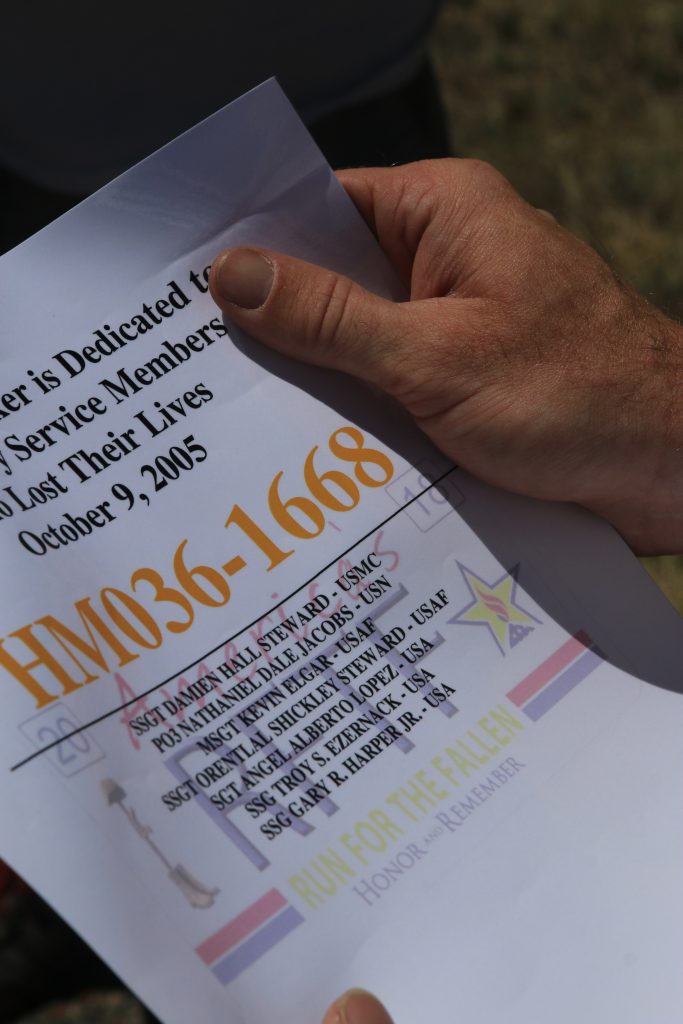 ker is Dedicated to
y Service Members
o Lost Their Lives
October 9, 2005
HM036-1668
20 18
America's
SSGT DAMIEN HALL STEWARD - USMC
PO3 NATHANIEL DALE JACOBS - USN
MSGT KEVIN ELGAR - USAF
SSGT ORENTLAL SHICKLEY STEWARD - USAF
SGT ANGEL ALBERTO LOPEZ - USA
SSG TROY S. EZERNACK - USA
SSG GARY R. HARPER JR. - USA
RFTF
RUN FOR THE FALLEN
HONOR AND REMEMBER